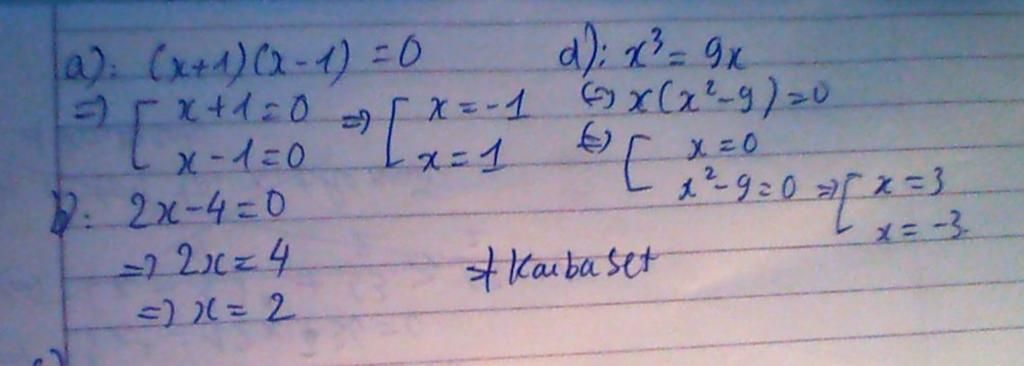 a): (x+1)(x-1) = 0
=> [ x+1=0 => [ x=-1
x-1=0 x=1
b): 2x-4=0
=> 2x=4
=> x=2
d): x³=9x
<=> x(x²-9)=0
<=> [ x=0
x²-9=0 => [ x=3
x=-3
KaibaSet